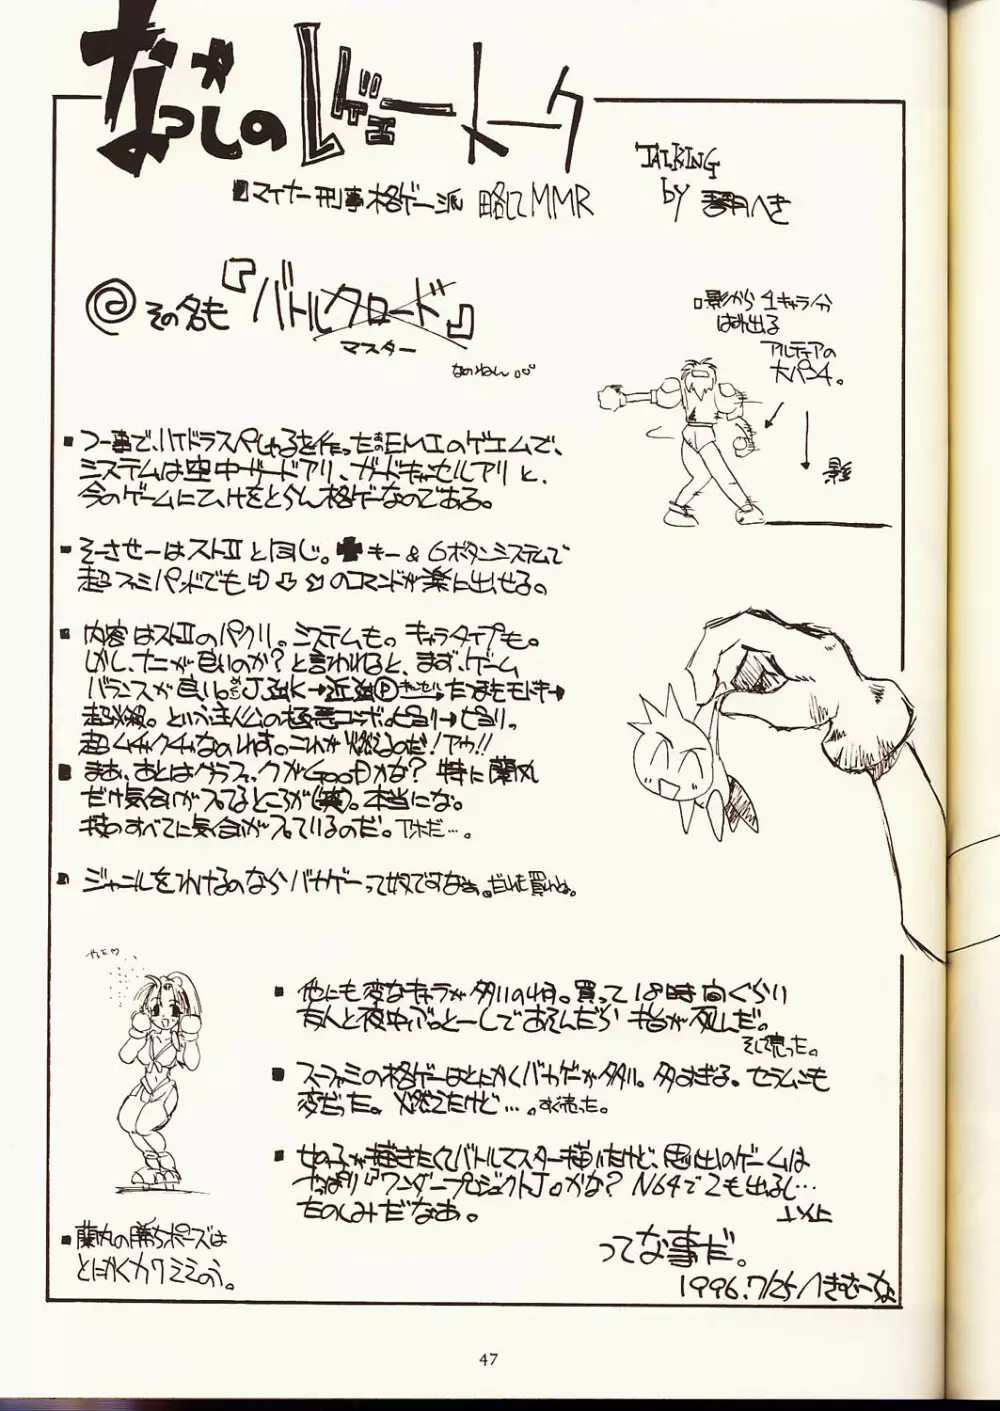 なつかしのレゲエートーク
■マイナー刑事格ゲー派 略してMMR
TALKING
by 琴月へき
@その名も『バトルクロード』
マスター
なのねん…
□影から1キャラ分
はみ出る
アルティアの
大パンチ。
影
■つー事で、ハイドラスペしゃるを作ったEMIのゲエムで、
システムは空中ガードアリ、ガードキャンセルアリと、
今のゲームにひけをとらん格ゲーなのである。
■そーさせーはストⅡと同じ。✚キー&6ボタンシステムで
超ファミパッドでも⇨⇩⬂のコマンドが楽に出せる。
■内容はストⅡのパクリ。システムも。キャラタイプも。
しかし、ナニが良いのか?と言われると、まず、ゲーム
バランスが良い。J強K→近強Ⓟキャンセル→たつまきモドキ→
超必殺。という主人公の極悪コンボ。ピヨリ→ピヨリ。
超ムチャクチャなのれす。これが燃えるのだ!アゥ!!
■まあ、あとはグラフィックがGOODかな?特に蘭丸
だけ気合いが入ってるところが(笑)。本当にな。
技のすべてに気合が入っているのだ。アホだ…。
■ジャンルをわけるのならバカゲーって奴ですなぁ。だいた買いね。
■他にも変なキャラが多いのね。買って18時間ぐらい
友人と夜中ぶっとーしであそんだら1台が死んだ。
そして売った。
■スーファミの格ゲーはとにかくバカゲーが多い。多すぎる。セラムンも
変だった。燃えたけど…。すぐ売った。
■女の子が描きたくてバトルマスター描いたけど、思い出のゲームは
やっぱり『ワンダープロジェクトJ』かな?N64で2も出るし…
たのしみだなあ。
以上
ってな事だ。
1996.7/25 へきむーな
■蘭丸の勝ちポーズは
とにかくカワミミのう。
47